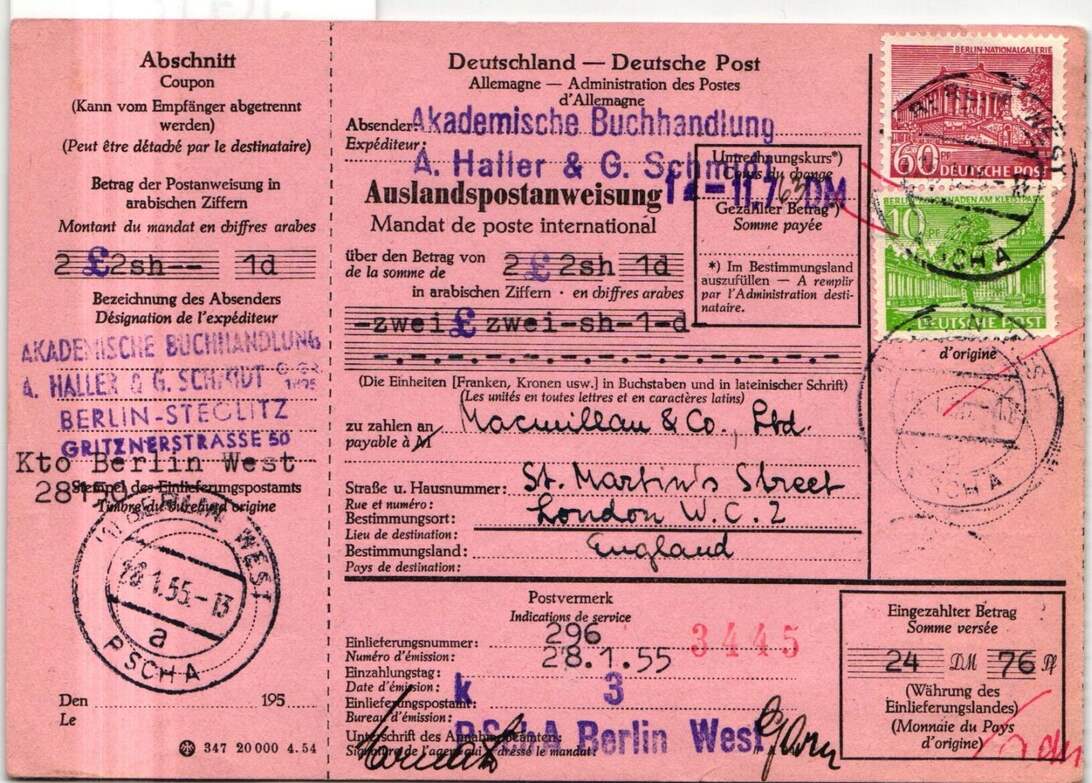 Abschnitt
Coupon
(Kann vom Empfänger abgetrennt
werden)
(Peut être détaché par le destinataire)
Betrag der Postanweisung in
arabischen Ziffern
Montant du mandat en chiffres arabes
2 £ 2sh-- 1d
Bezeichnung des Absenders
Désignation de l'expéditeur
AKADEMISCHE BUCHHANDLUNG
A. HALLER & G. SCHMIDT
BERLIN-STEGLITZ
GRITZNERSTRASSE 50
Kto Berlin West
Stempel des Einlieferungspostamts
Timbre du bureau d'origine
BERLIN WEST
28.1.55.-13
a
PSCHA
Den 195
Le
347 20 000 4.54
Deutschland — Deutsche Post
Allemagne — Administration des Postes
d'Allemagne
Absender:
Expéditeur:
Akademische Buchhandlung
A. Haller & G. Schmidt
Auslandspostanweisung
Mandat de poste international
Umrechnungskurs*)
Cours du change
DM
Gezahlter Betrag*)
Somme payée
*) Im Bestimmungsland
auszufüllen — A remplir
par l'Administration desti-
nataire.
über den Betrag von
de la somme de
2 £ 2sh 1d
in arabischen Ziffern · en chiffres arabes
-zwei £ zwei-sh-1-d-
(Die Einheiten [Franken, Kronen usw.] in Buchstaben und in lateinischer Schrift)
(Les unités en toutes lettres et en caractères latins)
zu zahlen an
payable à
Macmillan & Co., Ltd.
Straße u. Hausnummer:
Rue et numéro:
St. Martin's Street
Bestimmungsort:
Lieu de destination:
London W.C.2
Bestimmungsland:
Pays de destination:
England
BERLIN-NATIONALGALERIE
60 PF
DEUTSCHE POST
10 PF
AM KLEISTPARK
DEUTSCHE POST
d'origine
PSCHA
Postvermerk
Indications de service
Einlieferungsnummer:
Numéro d'émission:
296
3445
Einzahlungstag:
Date d'émission:
28.1.55
Einlieferungspostamt:
Bureau d'émission:
k 3
PSchA Berlin West
Unterschrift des Annahmebeamten:
Signature de l'agent qui a dressé le mandat:
Eingezahlter Betrag
Somme versée
24 DM 76 Pf
(Währung des
Einlieferungslandes)
(Monnaie du Pays
d'origine)